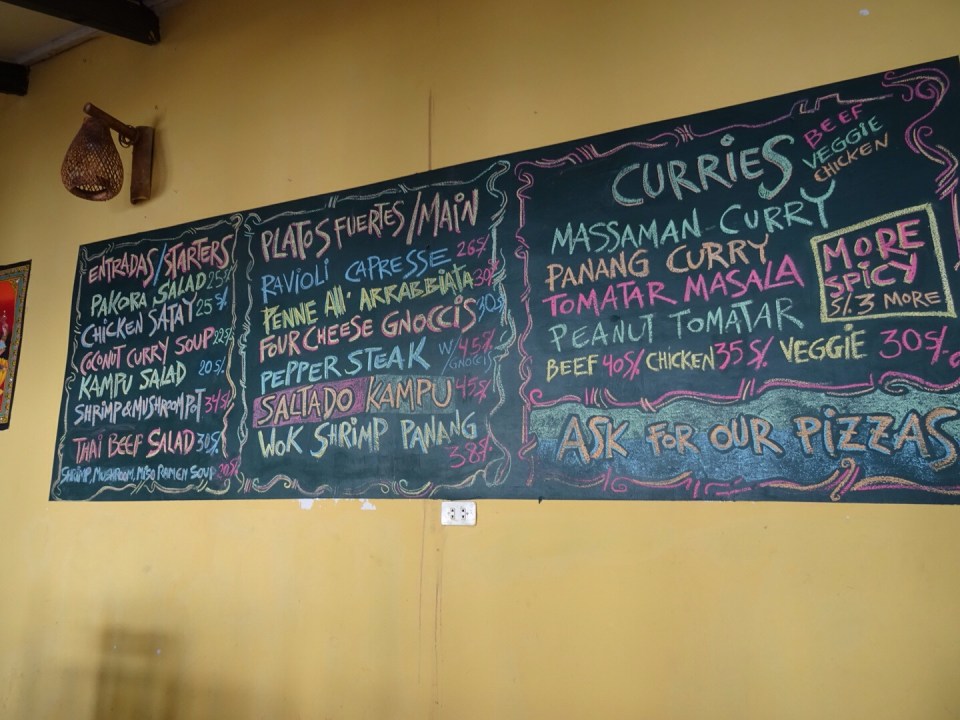 ENTRADAS/STARTERS
PAKORA SALAD 25S/.
CHICKEN SATAY 25S/.
COCONUT CURRY SOUP 22S/.
KAMPU SALAD 20S/.
SHRIMP & MUSHROOM POT 34S/.
THAI BEEF SALAD 30S/.
SHRIMP, MUSHROOM, MISO RAMEN SOUP 20S/.
PLATOS FUERTES/MAIN
RAVIOLI CAPRESSE 26S/.
PENNE ALL' ARRABBIATA 30S/.
FOUR CHEESE GNOCCIS 30S/.
PEPPER STEAK W/GNOCCIS 45S/.
SALTADO KAMPU 45S/.
WOK SHRIMP PANANG
38S/.
CURRIES
BEEF
VEGGIE
CHICKEN
MASSAMAN CURRY
PANANG CURRY
TOMATAR MASALA
PEANUT TOMATAR
MORE
SPICY
S/. 3 MORE
BEEF 40S/. CHICKEN 35S/. VEGGIE 30S/.
ASK FOR OUR PIZZAS